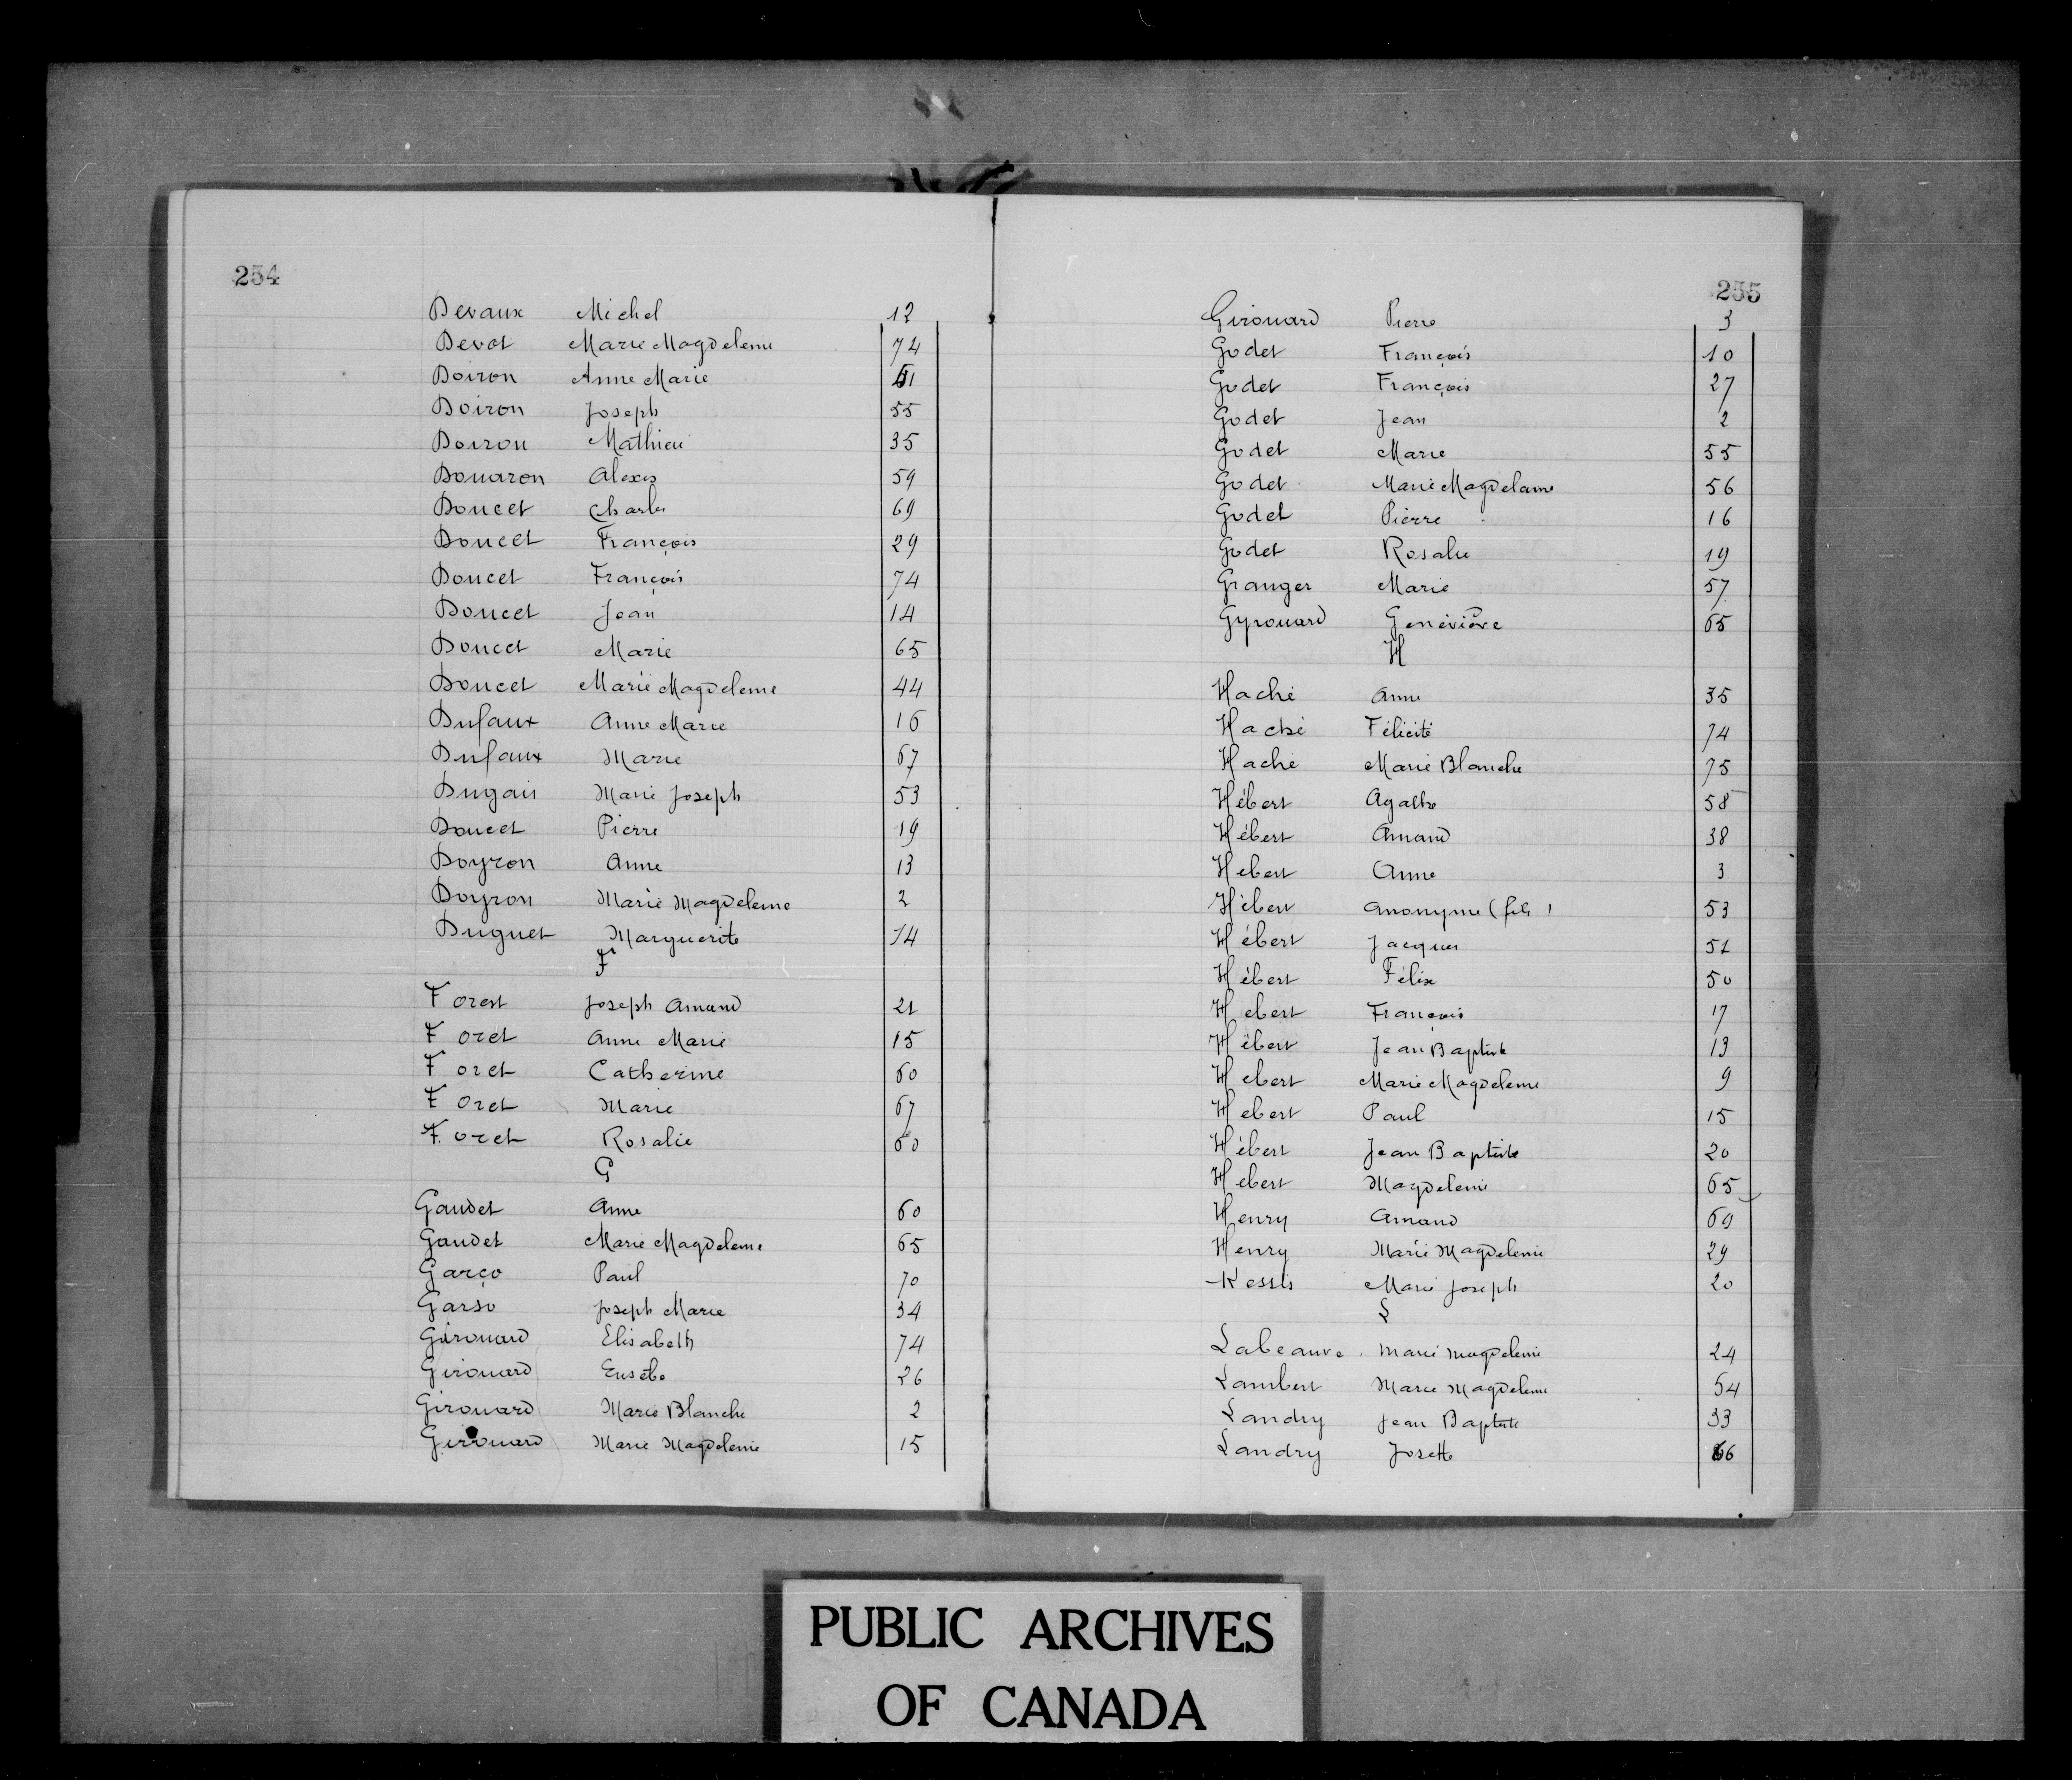 254
Devaux Michel 12
Devot Marie Magdeleine 74
Doiron Anne Marie 51
Doiron Joseph 55
Doiron Mathieu 35
Douaron Alexis 59
Doucet Charles 69
Doucet François 29
Doucet François 74
Doucet Jean 14
Doucet Marie 65
Doucet Marie Magdeleine 44
Dufaux Anne Marie 16
Dufaux Marie 67
Dugais Marie Joseph 53
Doucet Pierre 19
Doyron Anne 13
Doyron Marie Magdeleine 2
Duguet Marguerite 14
F
Forest Joseph Amand 21
Foret Anne Marie 15
Foret Catherine 60
Foret Marie 67
Foret Rosalie 60
G
Gaudet Anne 60
Gaudet Marie Magdeleine 65
Garço Paul 70
Garso Joseph Marie 34
Girouard Elisabeth 74
Girouard Eusèbe 26
Girouard Marie Blanche 2
Girouard Marie Magdeleine 15
255
Girouard Pierre 3
Godet François 10
Godet François 27
Godet Jean 2
Godet Marie 55
Godet Marie Magdelaine 56
Godet Pierre 16
Godet Rosalie 19
Granger Marie 57
Gyrouard Geneviève 65
H
Haché Anne 35
Haché Félicité 74
Haché Marie Blanche 75
Hébert Agathe 58
Hébert Amand 38
Hebert Anne 3
Hébert Anonyme (fils) 53
Hébert Jacques 51
Hébert Félix 50
Hebert François 17
Hébert Jean Baptiste 13
Hebert Marie Magdeleine 9
Hebert Paul 15
Hébert Jean Baptiste 20
Hebert Magdeleine 65
Henry Amand 69
Henry Marie Magdeleine 29
Kessis Marie Joseph 20
L
Labeauve Marie Magdeleine 24
Lambert Marie Magdeleine 54
Landry Jean Baptiste 33
Landry Josette 66
PUBLIC ARCHIVES
OF CANADA